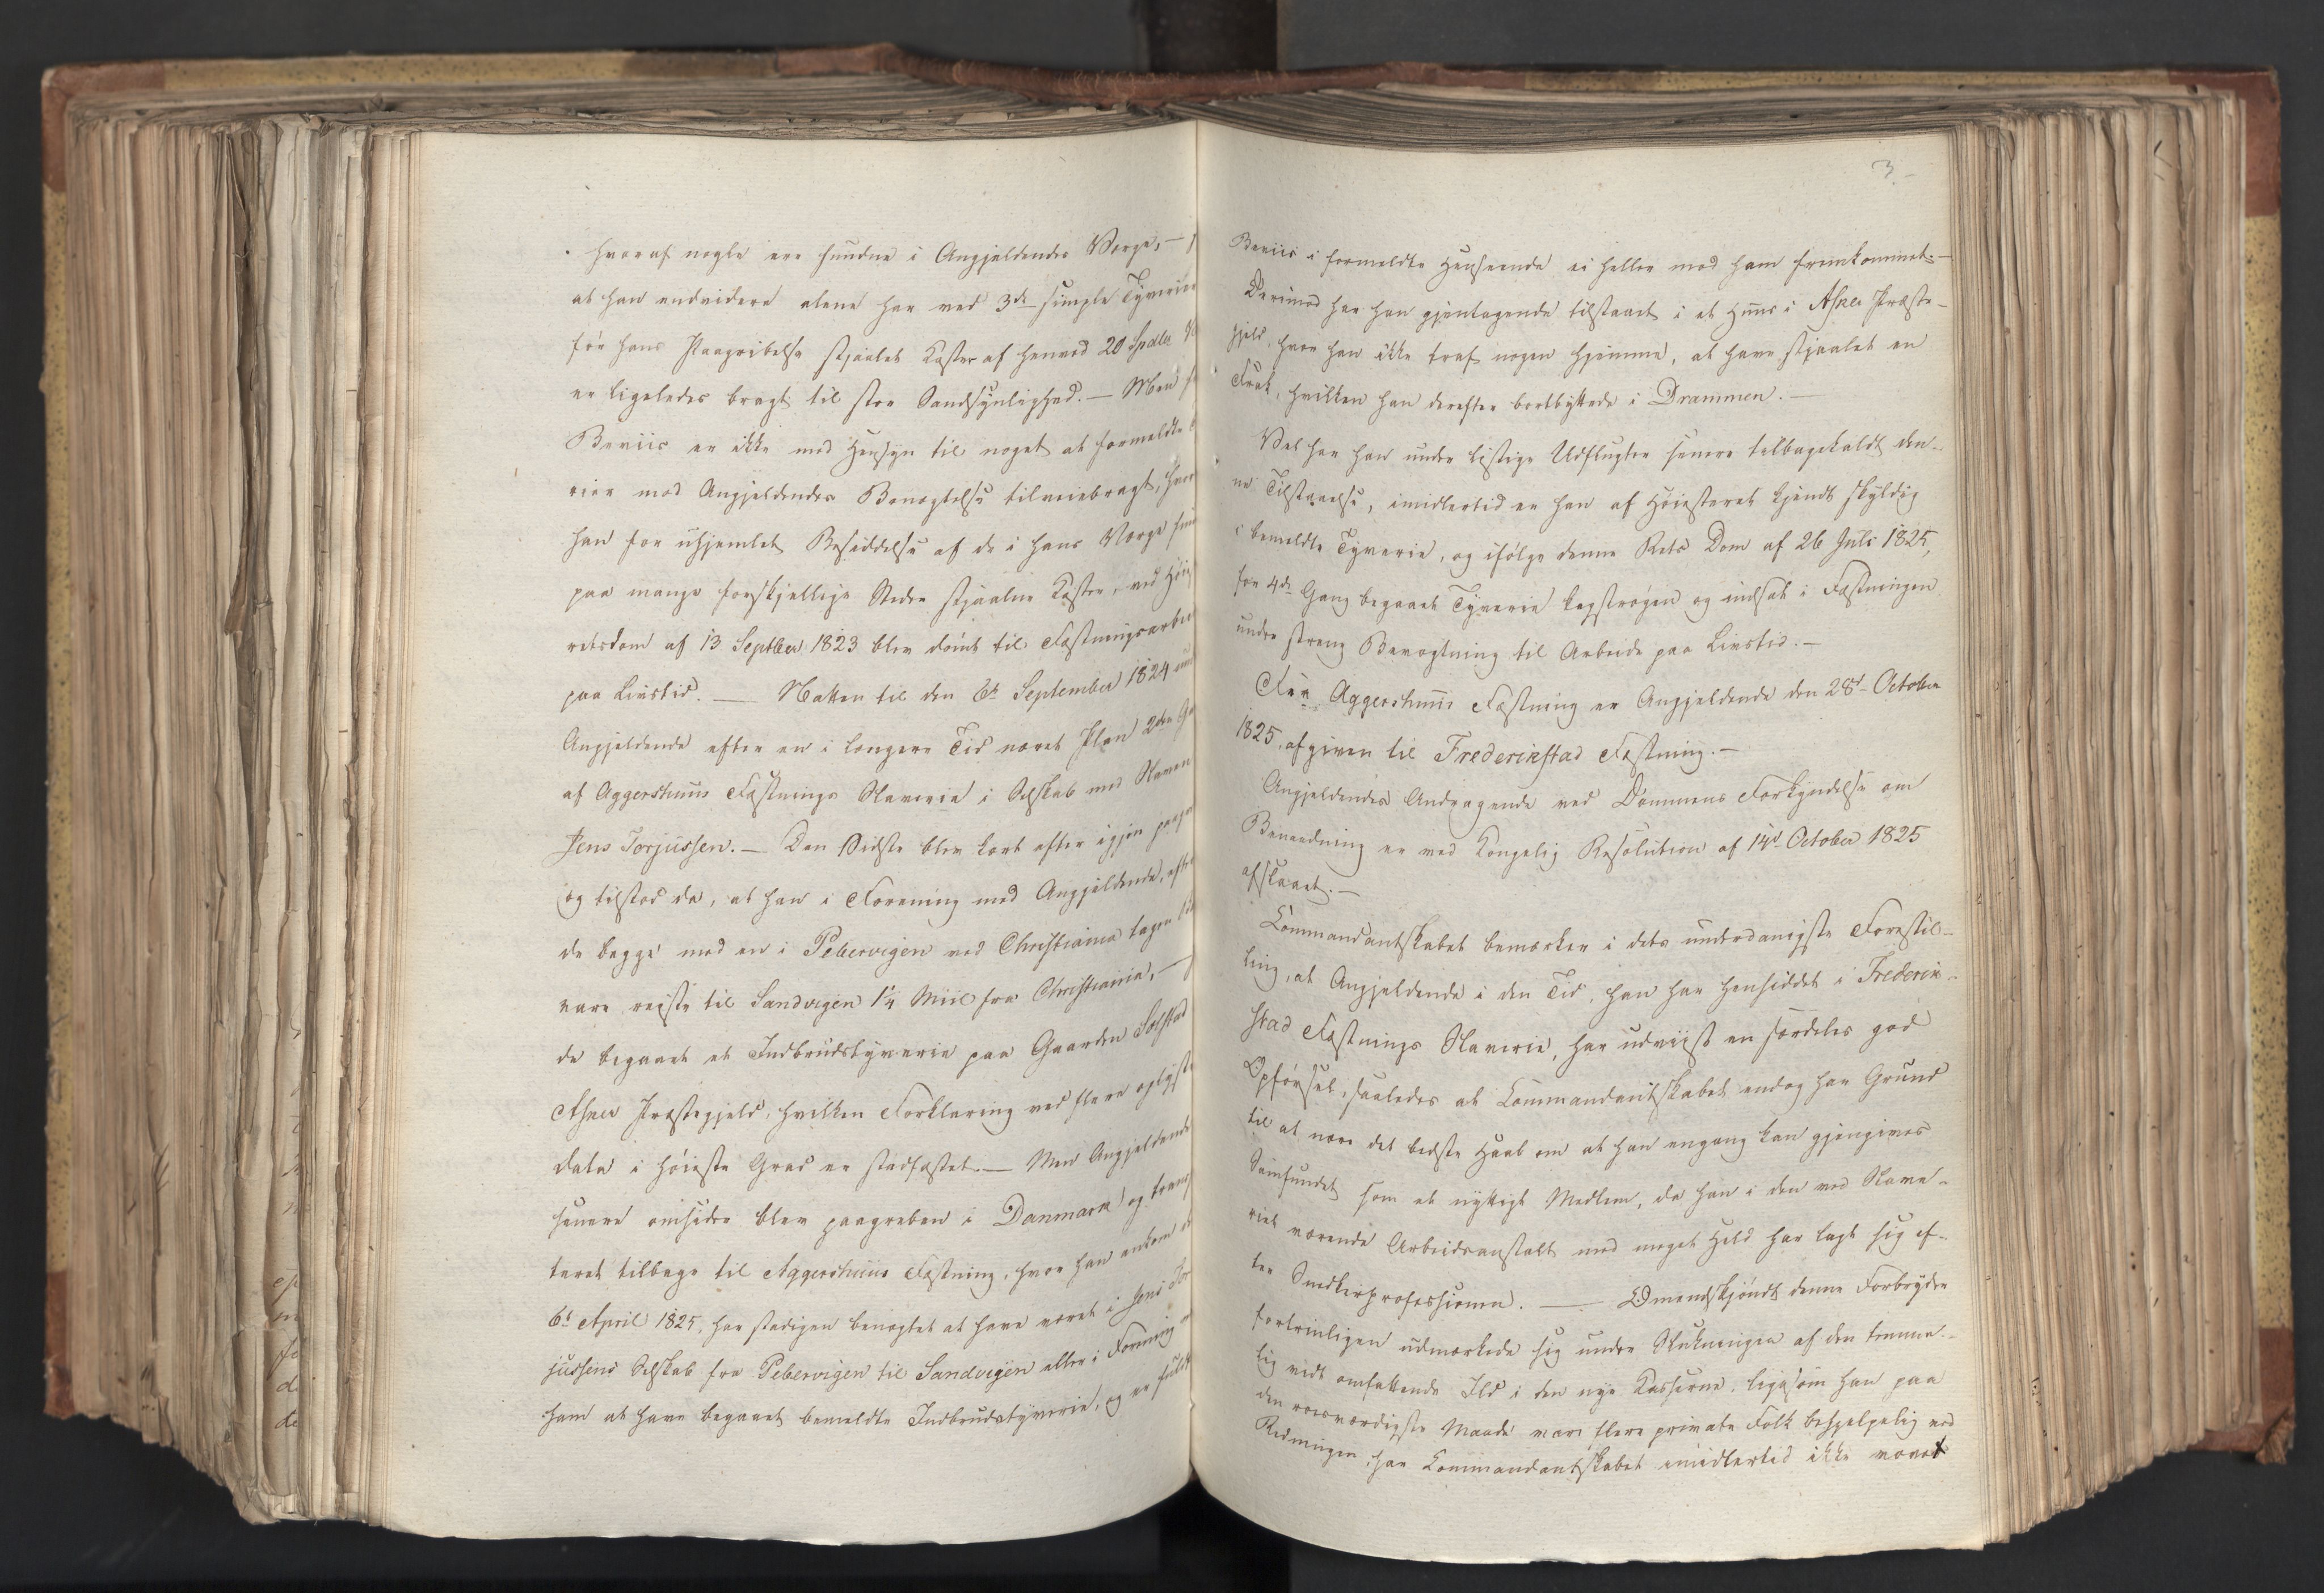 hvoraf nogle ere fundne i Angjeldendes Værge, —
at han endvidere alene har ved 3de simple Tyverier
før hans Paagribelse stjaalet Koster af henved 20 Spdlrs
er ligeledes bragt til stor Sandsynlighed. — Men
Beviis er ikke med Hensyn til noget af formeldte
rier mod Angjeldendes Benægtelse tilveiebragt, hvor
han for uhjemlet Besiddelse af de i hans Værge
paa mange forskjellige Steder stjaalne Koster, ved Høie
retsdom af 13 Septber 1823 blev dømt til Fæstningsarbei
paa Livstid. — Natten til den 6te September 1824
Angjeldende efter en i længere Tid næret Plan 2den
af Aggershuus Fæstnings Slaverie i Selskab med Slaven
Jens Torjussen. — Den Sidste blev kort efter igjen
og tilstod da, at han i Forening med Angjeldende, efter
de begge med en i Pebervigen ved Christiania tagen
vare reiste til Sandvigen 1¼ Miil fra Christiania, —
de begaaet et Indbrudstyverie paa Gaarden Solstad
Asker Præstegjeld, hvilken Forklaring ved flere oplyste
data i høieste Grad er stadfæstet. — Men Angjeldende
senere omsider blev paagreben i Danmark og trans
teret tilbage til Aggershuus Fæstning, hvor han ankom
6te April 1825, har stadigen benægtet at have været i Jens Tor
jussens Selskab fra Pebervigen til Sandvigen eller i Forening
ham at have begaaet bemeldte Indbrudstyverie, og er
3
Beviis i formeldte Henseende ei heller mod ham fremkommet. —
Derimod har han gjentagende tilstaaet i et Huus i Asker Præste-
gjeld, hvor han ikke traf nogen hjemme, at have stjaalet en
Frak, hvilken han derefter bortbyttede i Drammen. —
Vel har han under listige Udflugter senere tilbagekaldt den-
ne Tilstaaelse, imidlertid er han af Høiesteret kjendt skyldig
i bemeldte Tyverie, og ifølge denne Rets Dom af 26 Juli 1825,
for 4de Gang begaaet Tyverie kagstrøgen og indsat i Fæstningen
under streng Bevogtning til Arbeide paa Livstid. —
Fra Aggershuus Fæstning er Angjeldende den 28de October
1825, afgiven til Frederikstad Fæstning. —
Angjeldendes Andragende ved Dommens Forkyndelse om
Benaadning er ved Kongelig Resolution af 14de October 1825
afslaaet. —
Commandantskabet bemærker i dets underdanigste Forestil-
ling, at Angjeldende i den Tid, han har hensiddet i Frederik-
stad Fæstnings Slaverie, har udviist en særdeles god
Opførsel, saaledes at Commandantskabet endog har Grund
til at nære det bedste Haab om at han engang kan gjengives
Samfundet som et nyttigt Medlem, da han i den ved Slave-
riet værende Arbeidsanstalt med meget Held har lagt sig ef-
ter Snedkerprofessionen. — Omendskjøndt denne Forbryder
fortrinligen udmærkede sig under Slukningen af den temme-
lig vidt omfattende Ild i den nye Casserne, ligesom han paa
den roesværdigste Maade var flere private Folk behjelpelig ved
Redningen, har Commandantskabet imidlertid ikke vovet